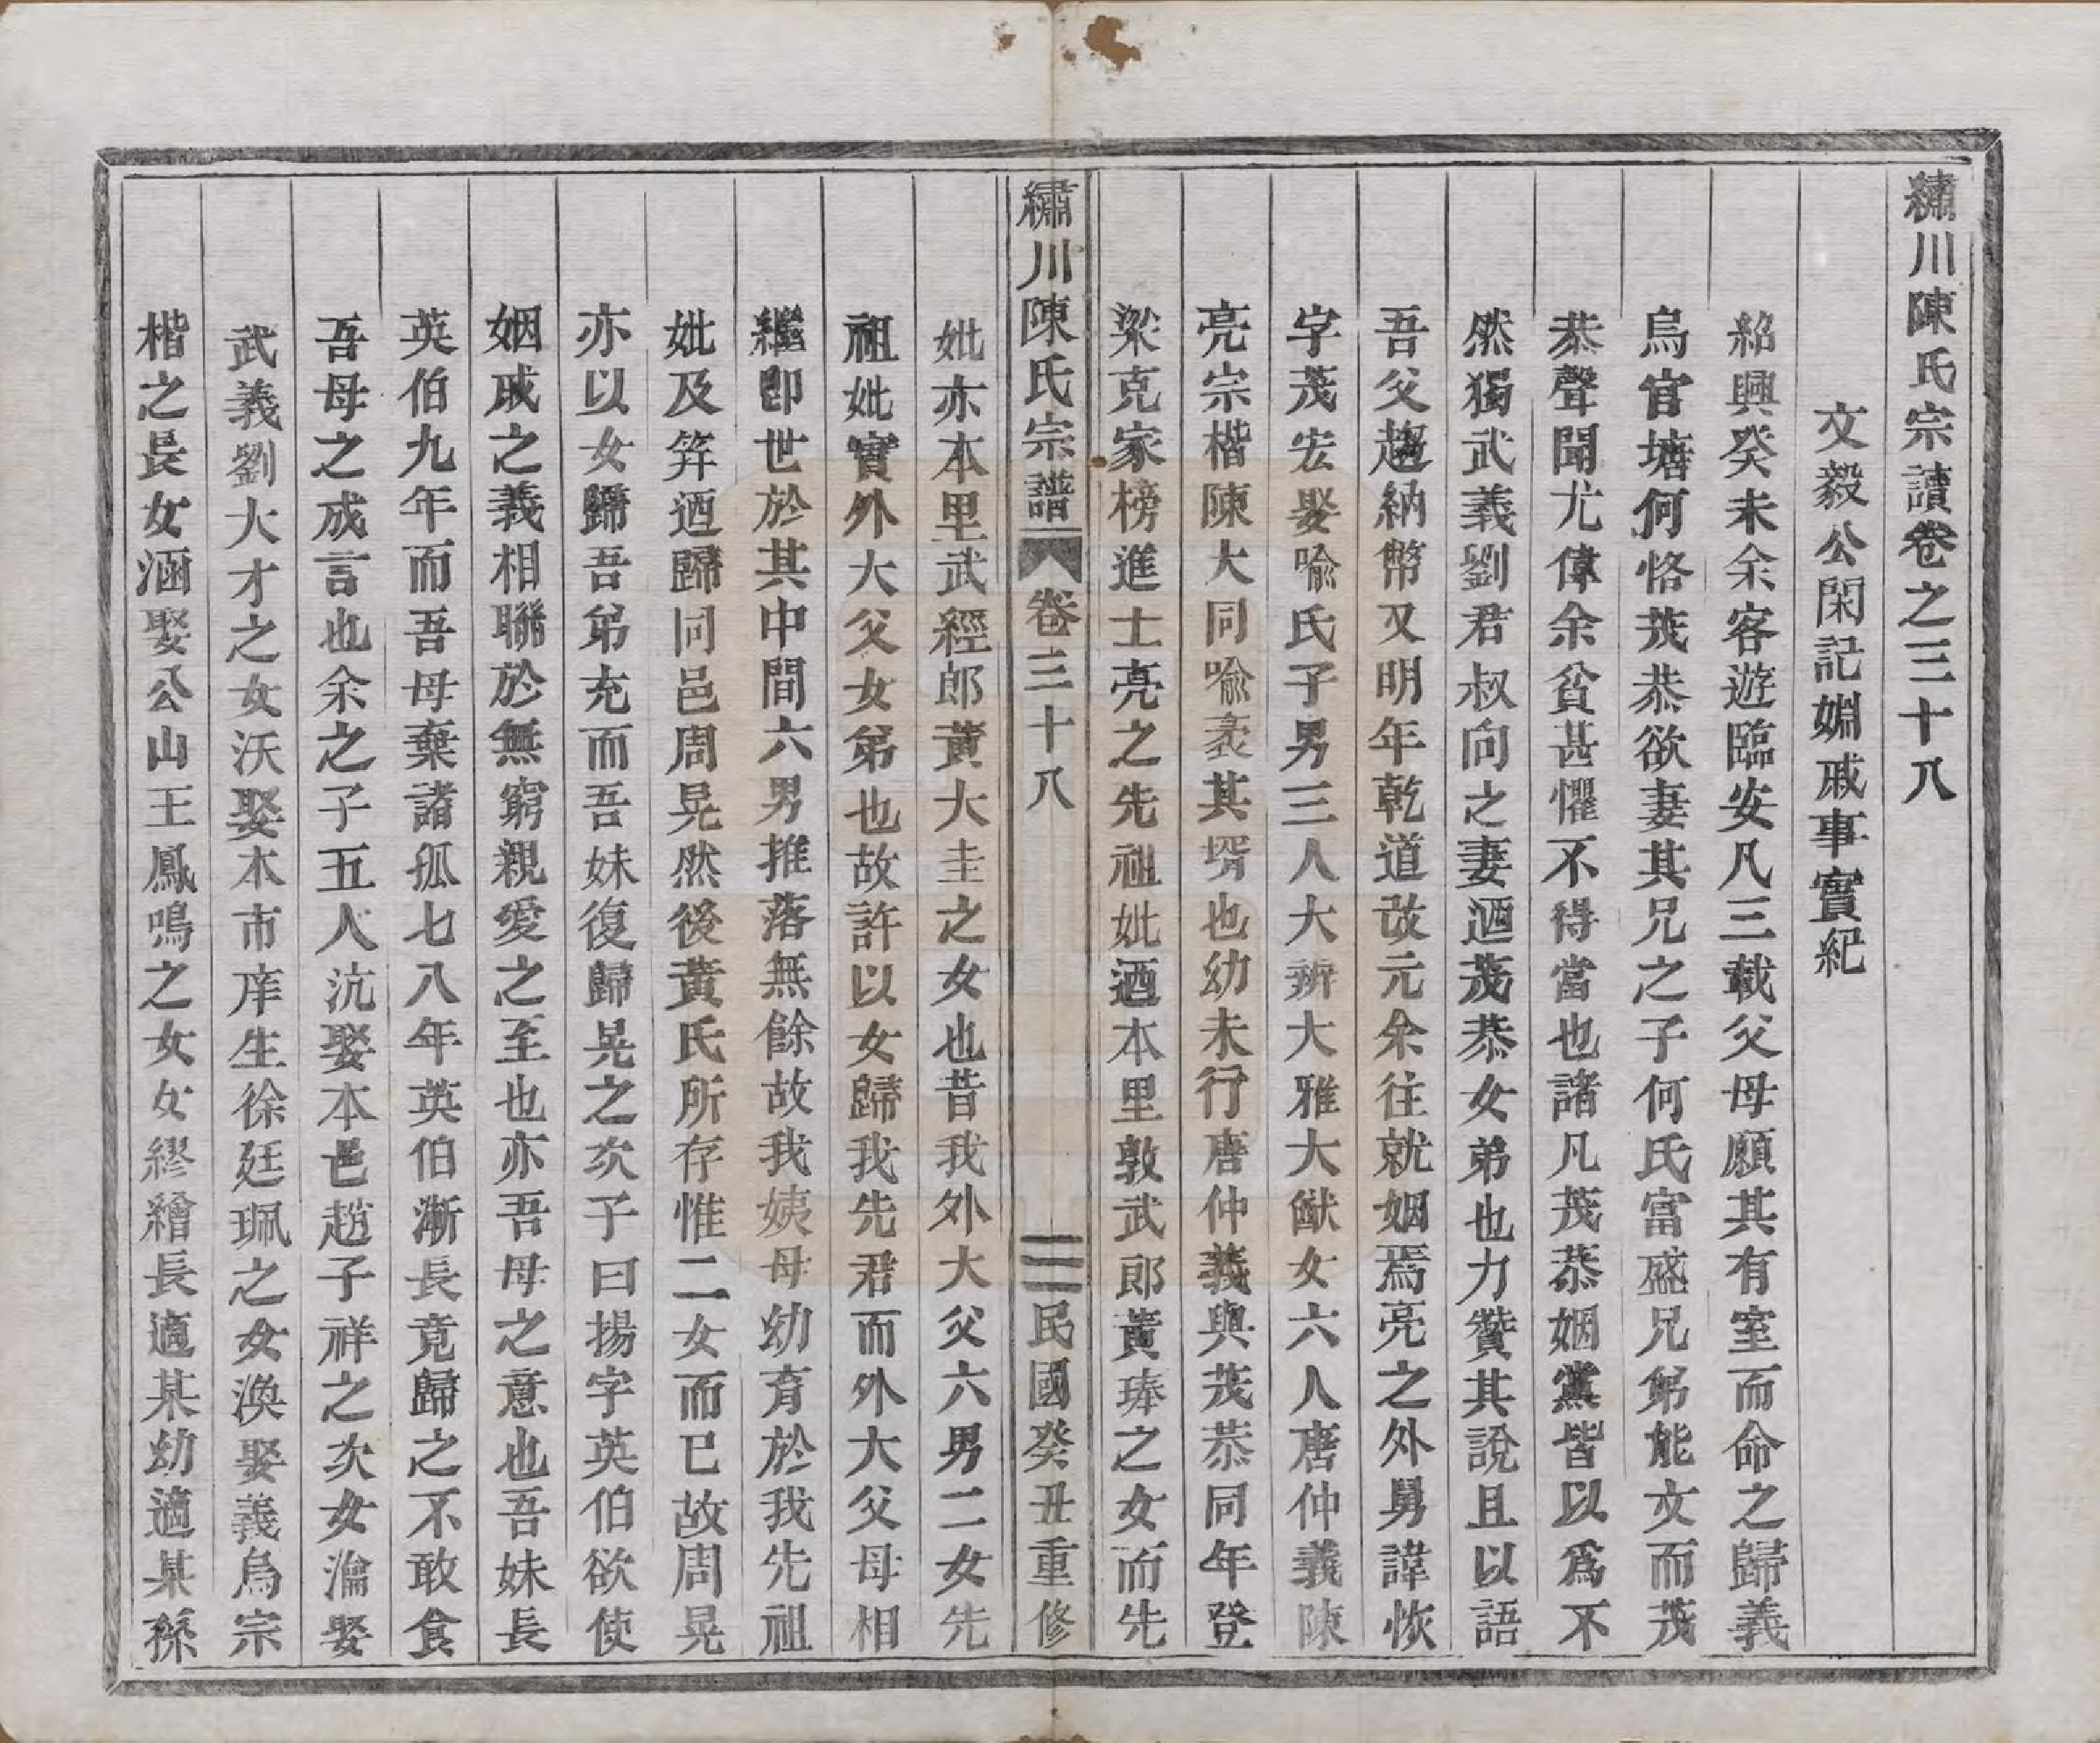 繡川陳氏宗譜卷之三十八
文毅公閑記姻戚事實紀
紹興癸未余客遊臨安凡三載父母願其有室而命之歸義
烏官塘何恪茂恭欲妻其兄之子何氏富盛兄弟能文而茂
恭聲聞尤偉余貧甚懼不得當也諸凡茂恭姻黨皆以爲不
然獨武義劉君叔向之妻迺茂恭女弟也力贊其說且以語
吾父趨納幣又明年乾道改元余往就姻焉亮之外舅諱恢
字茂宏娶喻氏子男三人大辨大雅大猷女六人唐仲義陳
亮宗楷陳大同喻袤其壻也幼未行唐仲義與茂恭同年登
梁克家榜進士亮之先祖妣迺本里敦武郎黃琫之女而先
繡川陳氏宗譜 卷三十八 三 民國癸丑重修
妣亦本里武經郎黃大圭之女也昔我外大父六男二女先
祖妣實外大父女弟也故許以女歸我先君而外大父母相
繼卽世於其中間六男推落無餘故我姨母幼育於我先祖
妣及筓迺歸同邑周晃然後黃氏所存惟二女而已故周晃
亦以女歸吾弟充而吾妹復歸晃之次子曰揚字英伯欲使
姻戚之義相聯於無窮親愛之至也亦吾母之意也吾妹長
英伯九年而吾母棄諸孤七八年英伯漸長竟歸之不敢食
吾母之成言也余之子五人沆娶本邑趙子祥之次女瀹娶
武義劉大才之女沃娶木市庠生徐廷珮之女渙娶義烏宗
楷之長女涵娶公山王鳳鳴之女女繆繪長適某幼適某孫